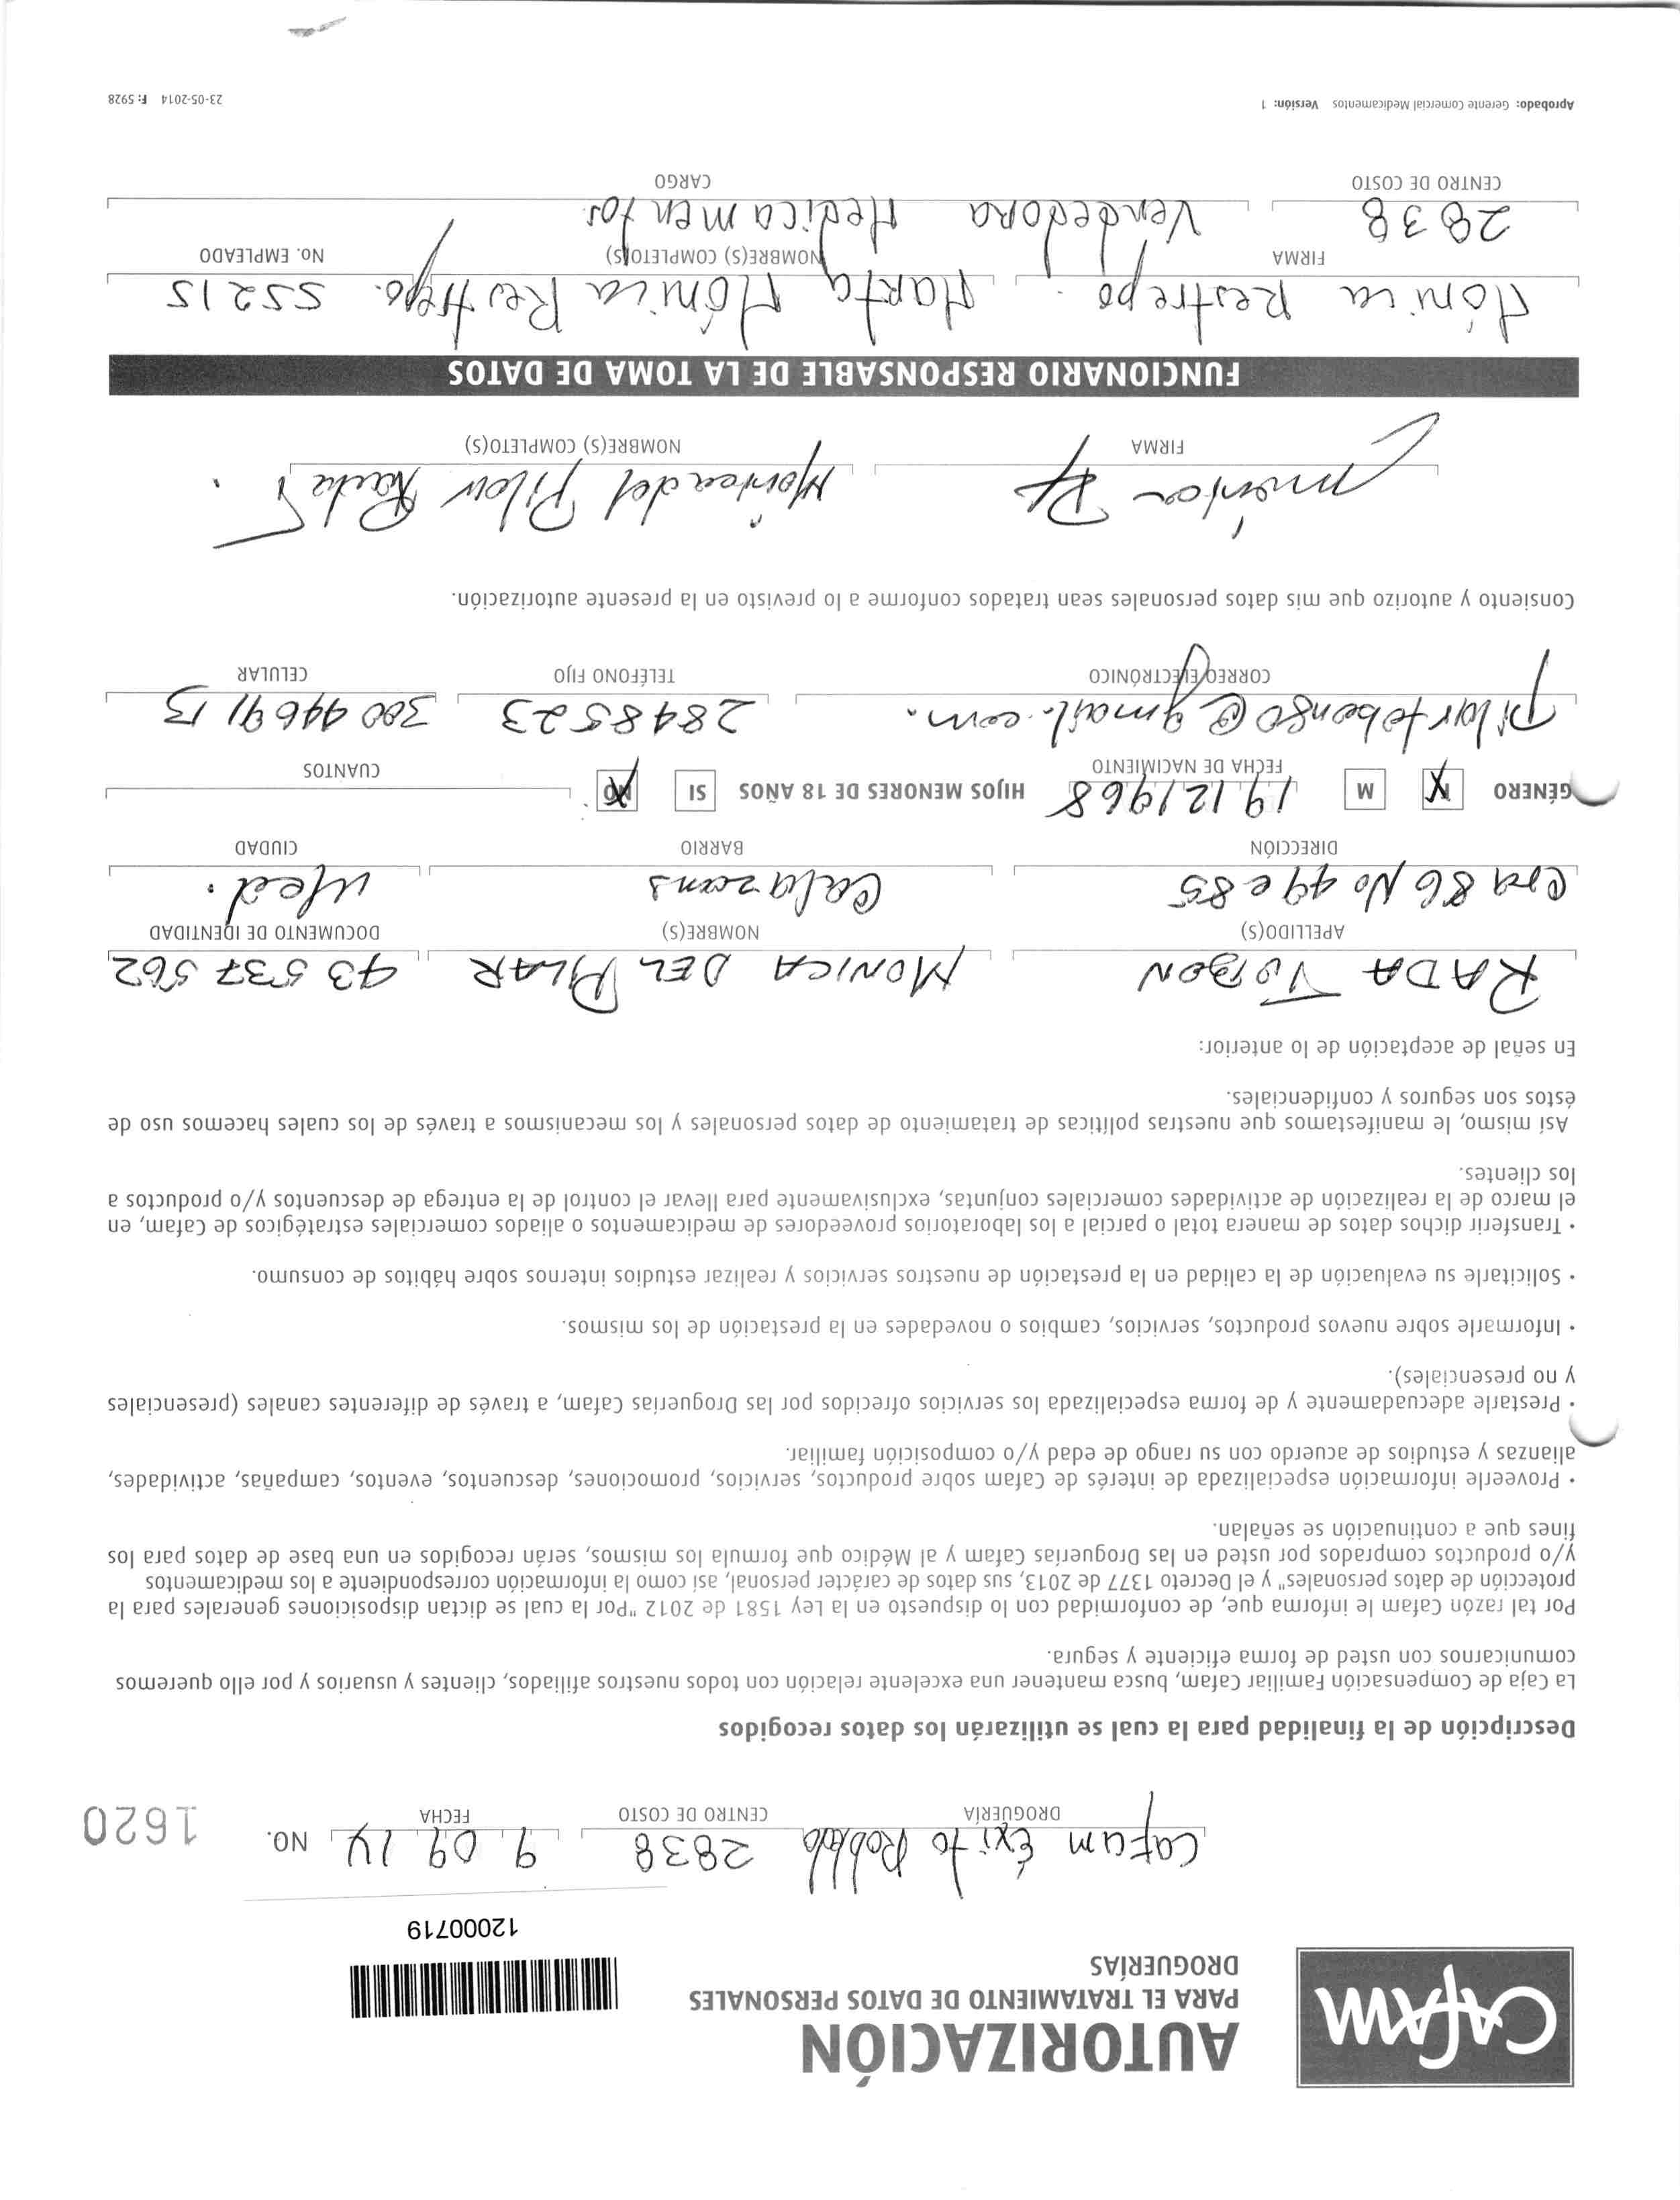 cafam
AUTORIZACIÓN
PARA EL TRATAMIENTO DE DATOS PERSONALES
DROGUERÍAS
12000719
Cafam Éxito Robledo 2838 9 09 14 NO. 1620
DROGUERÍA CENTRO DE COSTO FECHA
Descripción de la finalidad para la cual se utilizarán los datos recogidos
La Caja de Compensación Familiar Cafam, busca mantener una excelente relación con todos nuestros afiliados, clientes y usuarios y por ello queremos
comunicarnos con usted de forma eficiente y segura.
Por tal razón Cafam le informa que, de conformidad con lo dispuesto en la Ley 1581 de 2012 "Por la cual se dictan disposiciones generales para la
protección de datos personales" y el Decreto 1377 de 2013, sus datos de carácter personal, así como la información correspondiente a los medicamentos
y/o productos comprados por usted en las Droguerías Cafam y al Médico que formula los mismos, serán recogidos en una base de datos para los
fines que a continuación se señalan.
• Proveerle información especializada de interés de Cafam sobre productos, servicios, promociones, descuentos, eventos, campañas, actividades,
alianzas y estudios de acuerdo con su rango de edad y/o composición familiar.
• Prestarle adecuadamente y de forma especializada los servicios ofrecidos por las Droguerías Cafam, a través de diferentes canales (presenciales
y no presenciales).
• Informarle sobre nuevos productos, servicios, cambios o novedades en la prestación de los mismos.
• Solicitarle su evaluación de la calidad en la prestación de nuestros servicios y realizar estudios internos sobre hábitos de consumo.
• Transferir dichos datos de manera total o parcial a los laboratorios proveedores de medicamentos o aliados comerciales estratégicos de Cafam, en
el marco de la realización de actividades comerciales conjuntas, exclusivamente para llevar el control de la entrega de descuentos y/o productos a
los clientes.
Así mismo, le manifestamos que nuestras políticas de tratamiento de datos personales y los mecanismos a través de los cuales hacemos uso de
éstos son seguros y confidenciales.
En señal de aceptación de lo anterior:
RADA TOBON MONICA DEL PILAR 43 537 562
APELLIDO(S) NOMBRE(S) DOCUMENTO DE IDENTIDAD
Cra 86 No 49 e 85 Calazans Med.
DIRECCIÓN BARRIO CIUDAD
GÉNERO F M 19 12 1968 HIJOS MENORES DE 18 AÑOS SI NO
FECHA DE NACIMIENTO CUANTOS
pilartobon80@gmail.com. 2848523 300 4469113
CORREO ELECTRÓNICO TELÉFONO FIJO CELULAR
Consiento y autorizo que mis datos personales sean tratados conforme a lo previsto en la presente autorización.
Mónica Mónica del Pilar Rada T.
FIRMA NOMBRE(S) COMPLETO(S)
FUNCIONARIO RESPONSABLE DE LA TOMA DE DATOS
Mónica Restrepo. Marta Mónica Restrepo. 55215
FIRMA NOMBRE(S) COMPLETO(S) No. EMPLEADO
2838 Vendedora Medicamentos
CENTRO DE COSTO CARGO
Aprobado: Gerente Comercial Medicamentos Versión: 1 23-05-2014 F: 5928